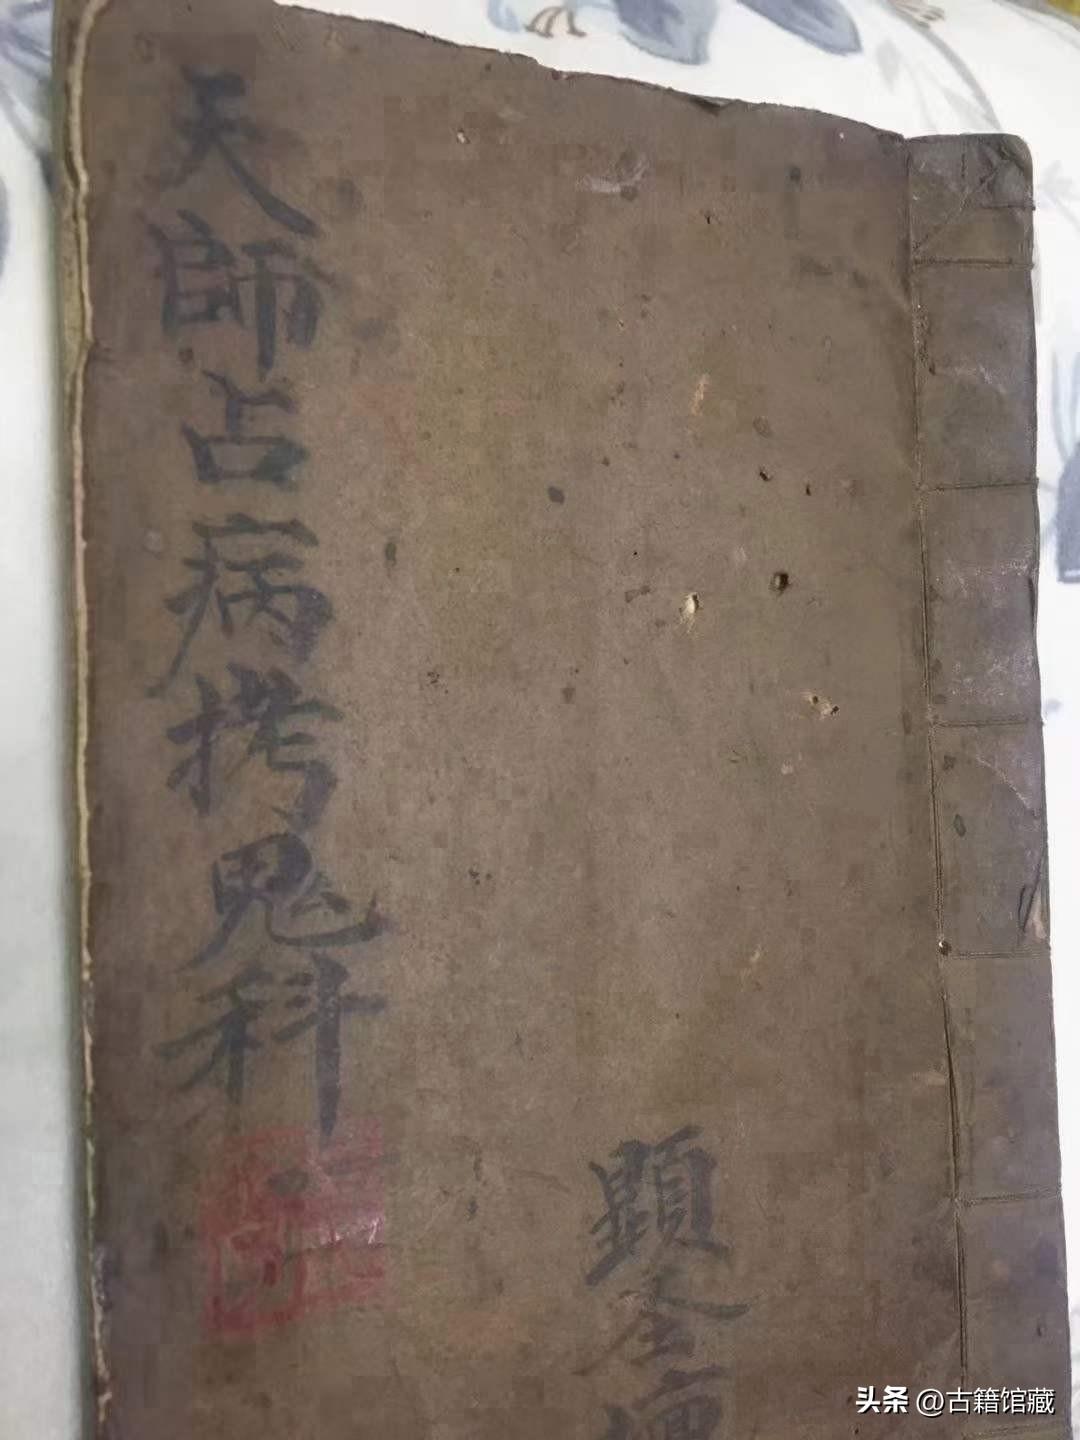 天師占病拷鬼科
顕全
头条 @古籍馆藏